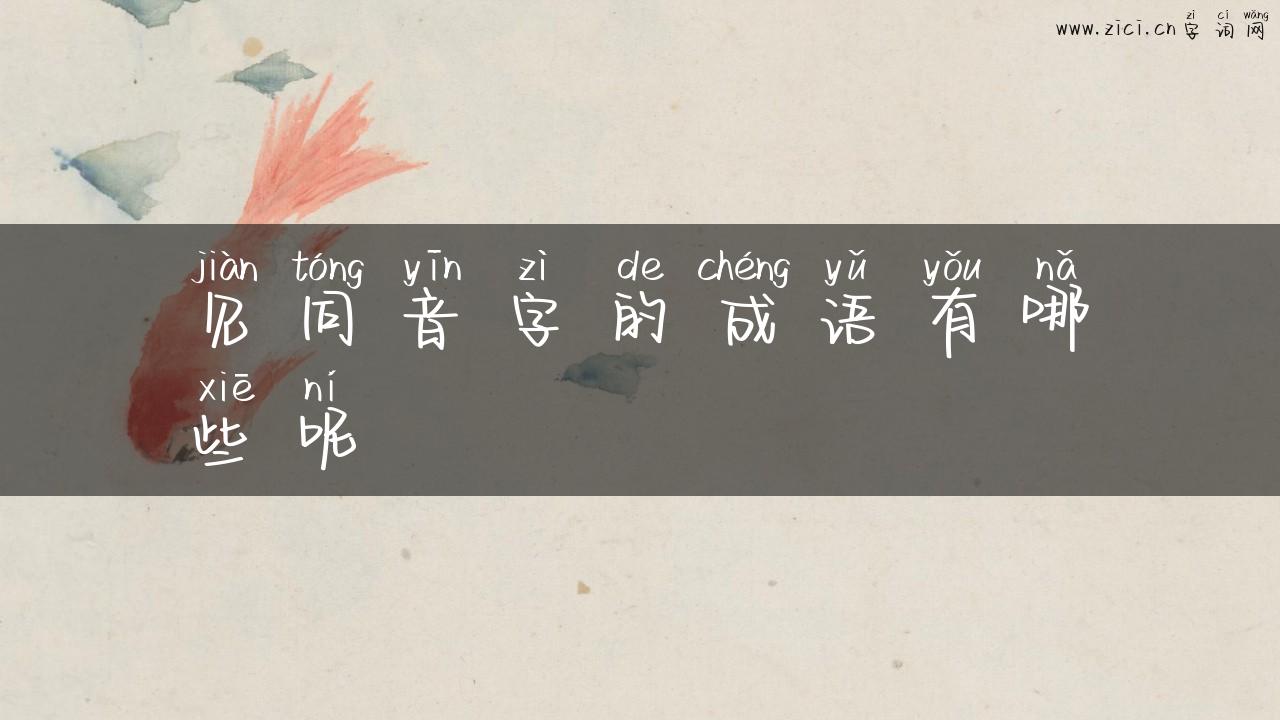 zì cí wǎng
www.zici.cn字词网
jiàn tóng yīn zì de chéng yǔ yǒu nǎ
见同音字的成语有哪
xiē ní
些呢